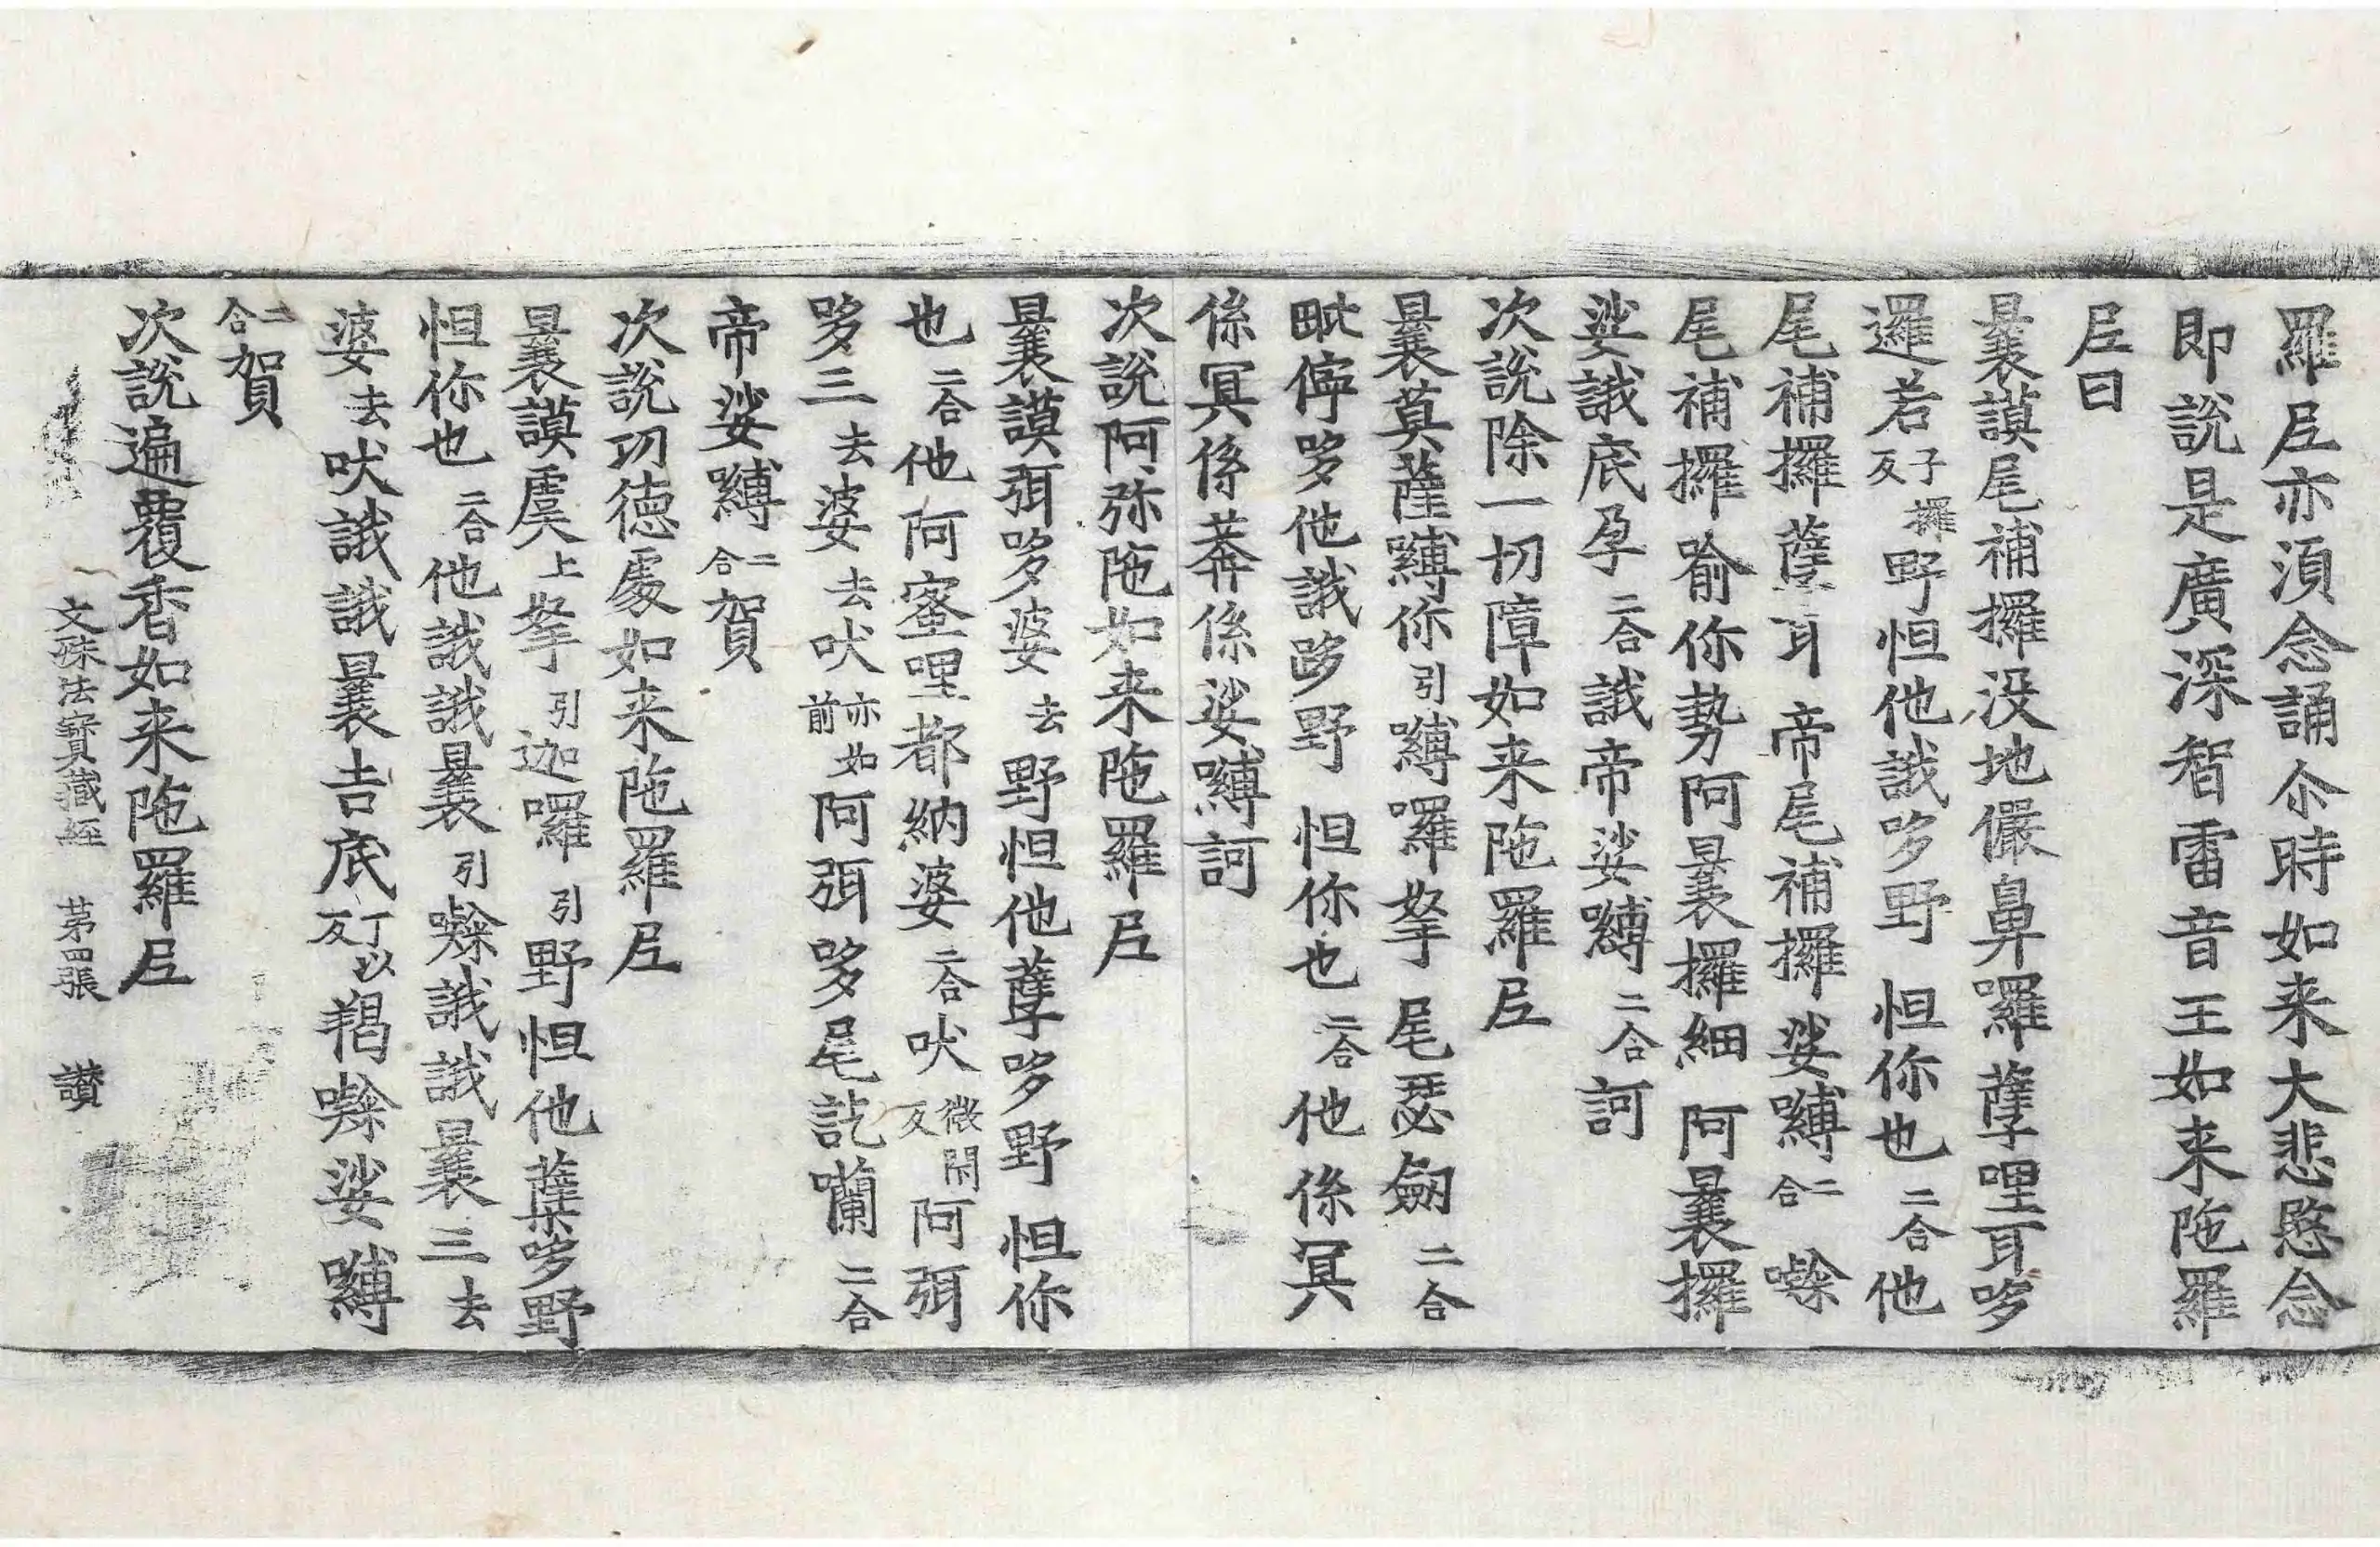 羅𡰱亦湏念誦尒時如来大悲愍念
即說是廣深智雷音王如来陁羅
𡰱曰
曩謨尾補攞没地儼鼻羅薩哩耳哆
邏若子攞反野怛他誐哆野怛你也二合他
尾補攞薩耳帝尾補攞娑嚩二合㘑
尾補攞喻你勢阿曩攞細阿曩攞
娑誐底孕二合誐帝娑嚩二合訶
次說除一切障如来陁羅𡰱
曩莫薩嚩你引嚩囉拏尾瑟劒二合
毗儜哆他誐哆野怛你也二合他係冥
係冥係莾係娑嚩訶
次說阿弥陁如来陁羅𡰱
曩謨弭哆婆去野怛他孽哆野怛你
也二合他阿蜜哩都納婆二合吠微閇反阿弭
哆三去婆去吠亦如前阿弭哆尾訖囒二合
帝娑嚩二合賀
次說功德處如来陁羅𡰱
曩謨虞上拏引迦囉引野怛他蘖哆野
怛你也二合他誐誐曩引㘑誐誐曩三去
婆去吠誐誐曩吉底丁以反羯㘑娑嚩
二合賀
次說遍覆香如来陁羅𡰱
文殊法寶藏經 苐四張 讚